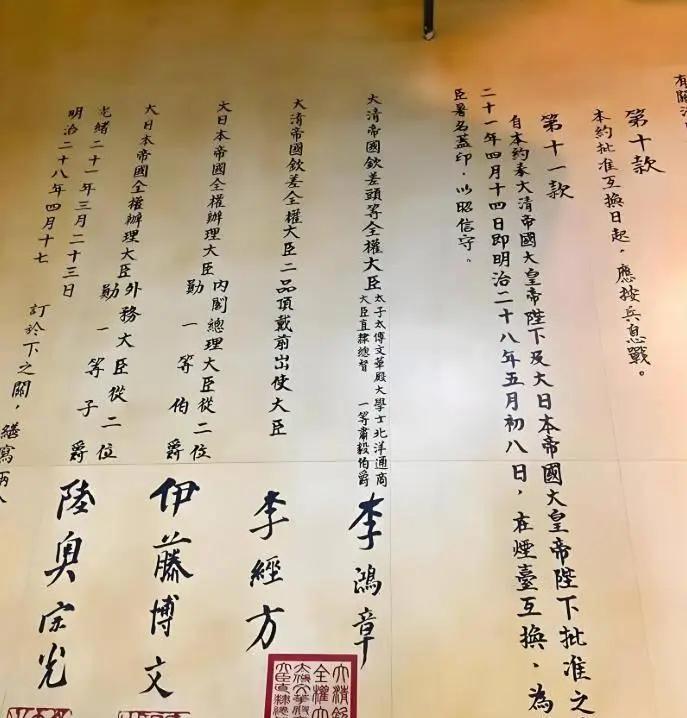 有關
第十款
本約批准互換日起,應按兵息戰。
第十一款
自本約奉大清帝國大皇帝陛下及大日本帝國大皇帝陛下批准之
二十一年四月十四日即明治二十八年五月初八日,在煙臺互換、為
臣署名蓋印,以昭信守。
大清帝國欽差頭等全權大臣
太子太傅文華殿大學士北洋通商
大臣直隸總督 一等肅毅伯爵
李鴻章
大清帝國欽差全權大臣二品頂戴前出使大臣
李經方
大日本帝國全權辦理大臣
內閣總理大臣從二位
勳一等伯爵
伊藤博文
大日本帝國全權辦理大臣
外務大臣從二位
勳一等子爵
陸奧宗光
光緒二十一年三月二十三日
明治二十八年四月十七
訂於下之關,繕寫兩